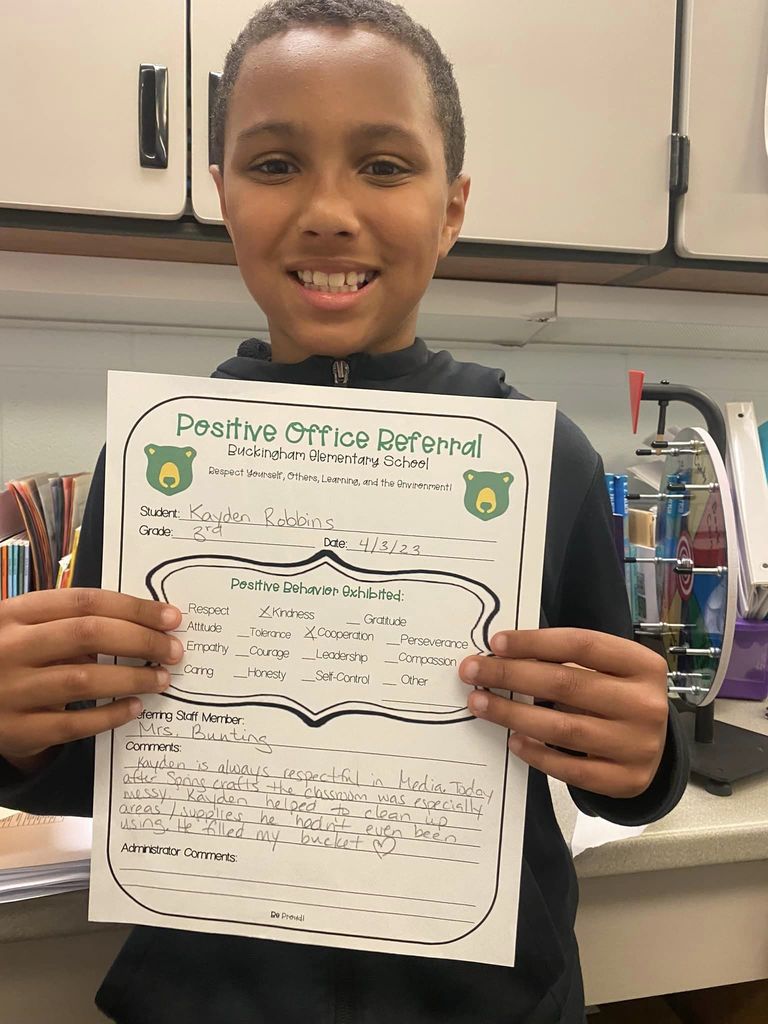 Positive Office Referral
Buckingham Elementary School
Respect Yourself, Others, Learning, and the Environment!
Student: Kayden Robbins
Grade: 3rd Date: 4/3/23
Positive Behavior Exhibited:
_Respect XKindness _Gratitude
Attitude _Tolerance XCooperation _Perseverance
Empathy _Courage _Leadership _Compassion
Caring _Honesty _Self-Control _Other
eferring Staff Member:
Mrs. Bunting
Comments:
Kayden is always respectful in Media. Today
after Spring crafts the classroom was especially
messy. Kayden helped to clean up
areas/supplies he hadn't even been
using. He filled my bucket ♡
Administrator Comments:
Be Proud!